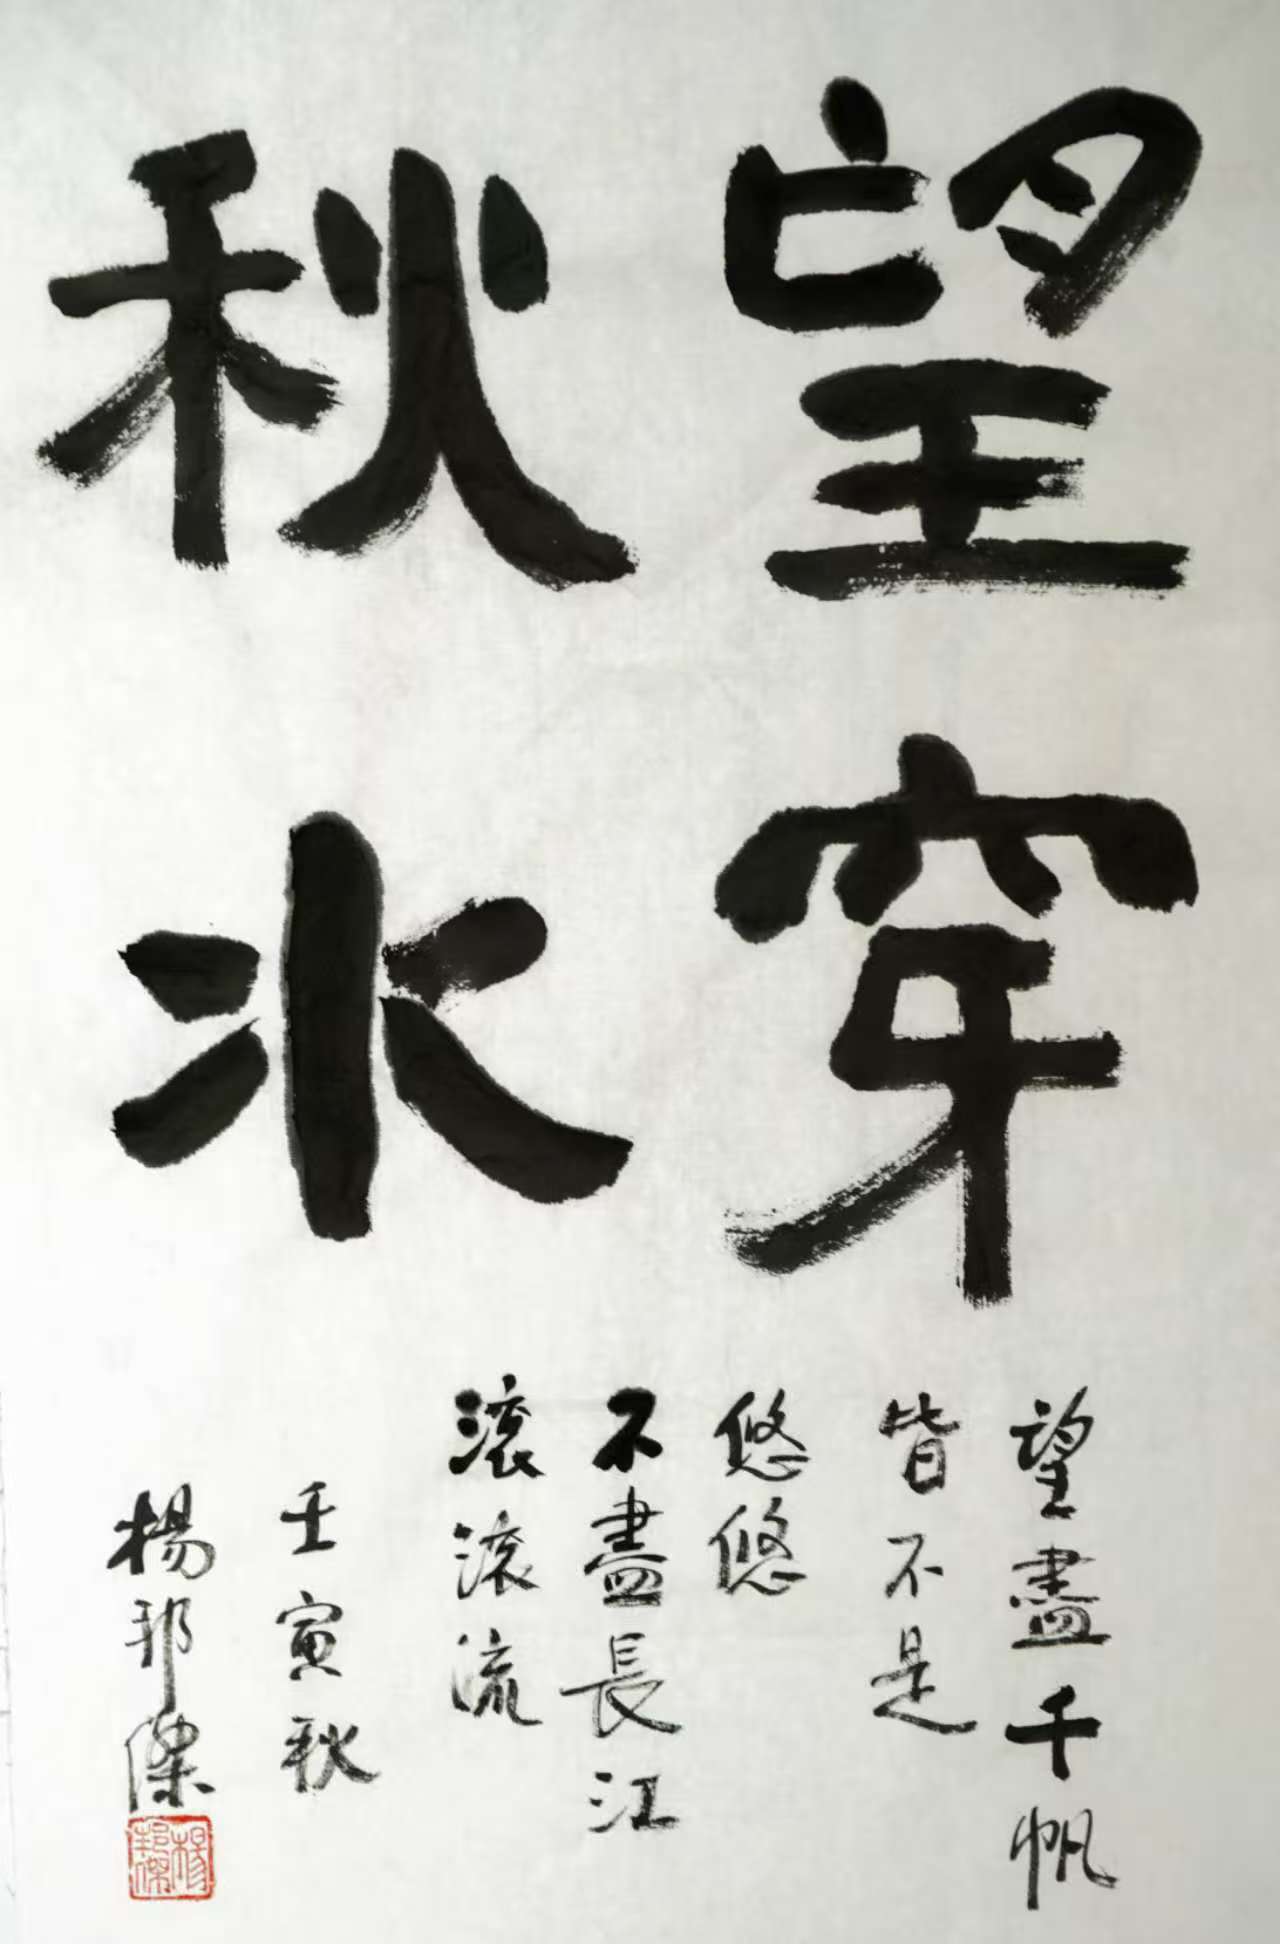 望穿
秋水
望盡千帆
皆不是
悠悠
不盡長江
滚滚流
壬寅秋
楊邦傑
楊邦傑